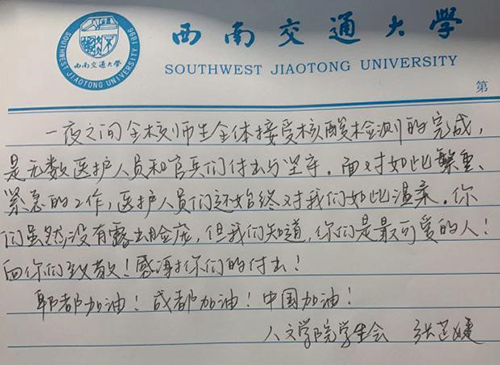 SOUTHWEST JIAOTONG UNIVERSITY 1896
西南交通大学
西南交通大学
SOUTHWEST JIAOTONG UNIVERSITY
第
一夜之间全校师生全体接受核酸检测的完成,
是无数医护人员和官兵们付出与坚守。面对如此繁重、
紧急的工作,医护人员们还始终对我们如此温柔。你
们虽然没有露出脸庞,但我们知道,你们是最可爱的人!
向你们致敬!感谢你们的付出!
郫都加油!成都加油!中国加油!
人文学院学生会 张芷婕